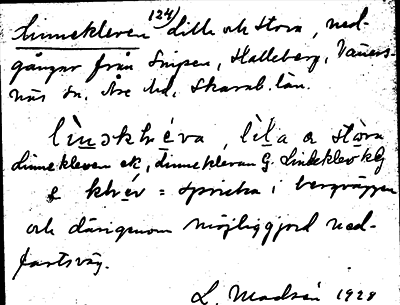 Linnekleven 124) lilla och stora, ned-
gångar från Snipen, Halleberg, Väners-
näs sn, Åse hd, Skarab. län.
lìnəkhléva, lìla o stòra
Linnekleven ek, Linneklevan G. Lindeklev klG
klev = spricka i bergväggen
och därigenom möjliggjord ned-
fartsväg.
L. Madsén 1928